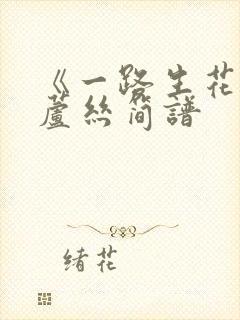 《一路生花
蘆絲簡譜
緒花